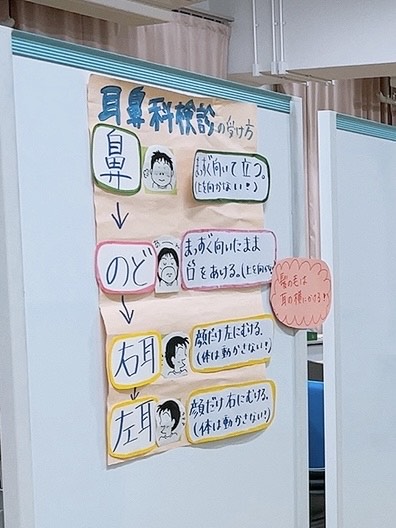 耳鼻科検診の受け方
鼻
まっすぐ向いて立つ。
(上を向かない!)
のど
まっすぐ向いたまま
口をあける。(上を向
髪の毛は
耳の横にかける!!
右耳
顔だけ左にむける。
(体は動かさない!)
左耳
顔だけ右にむける。
(体は動かさない!)